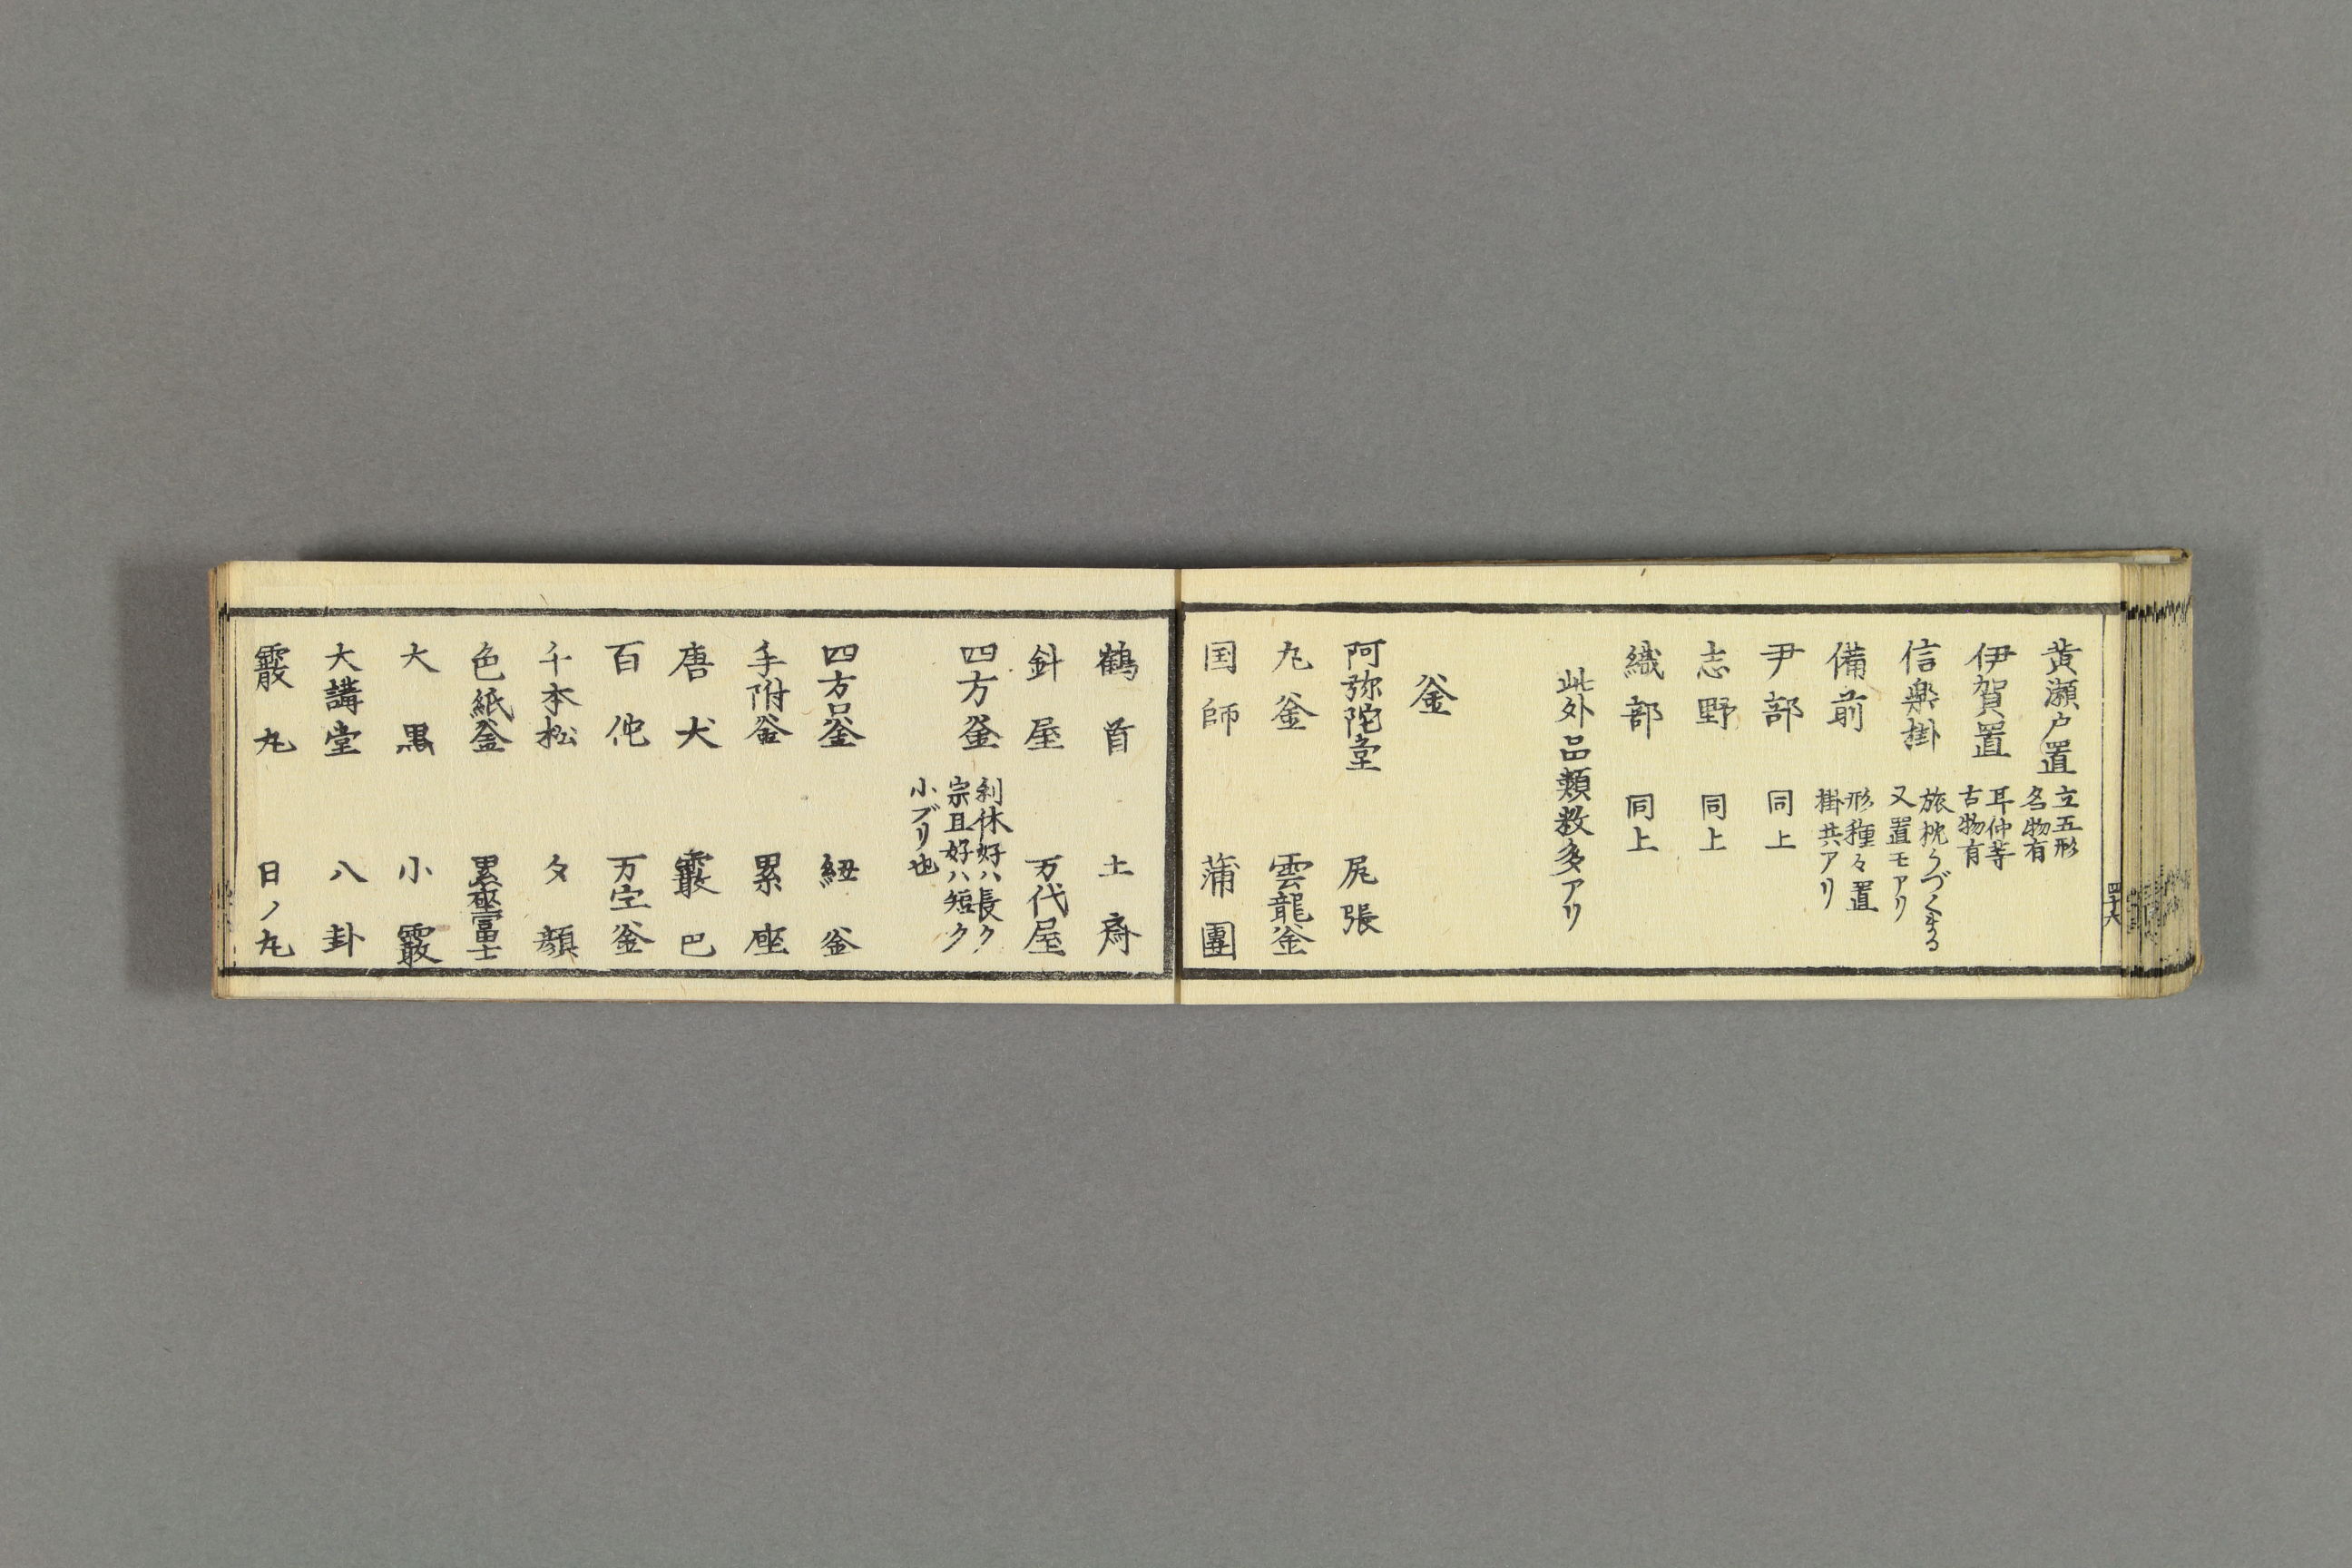 四十六
黄瀬戸置 立五形
名物有
伊賀置 耳仲等
古物有
信楽掛 旅枕うづくまる
又置モアリ
備前 形種々置
掛共アリ
尹部 同上
志野 同上
織部 同上
此外品類数多アリ
釜
阿弥陀堂 尻張
丸釜 雲龍釜
国師 蒲團
鶴首 土斎
針屋 万代屋
四方釜 利休好ハ長ク
宗旦好ハ短ク
小ブリ也
四方口釜 紐釜
手附釜 累座
唐犬 霰巴
百佗 万字釜
千本松 夕顔
色紙釜 富士
大黒 小霰
大講堂 八卦
霰丸 日ノ丸